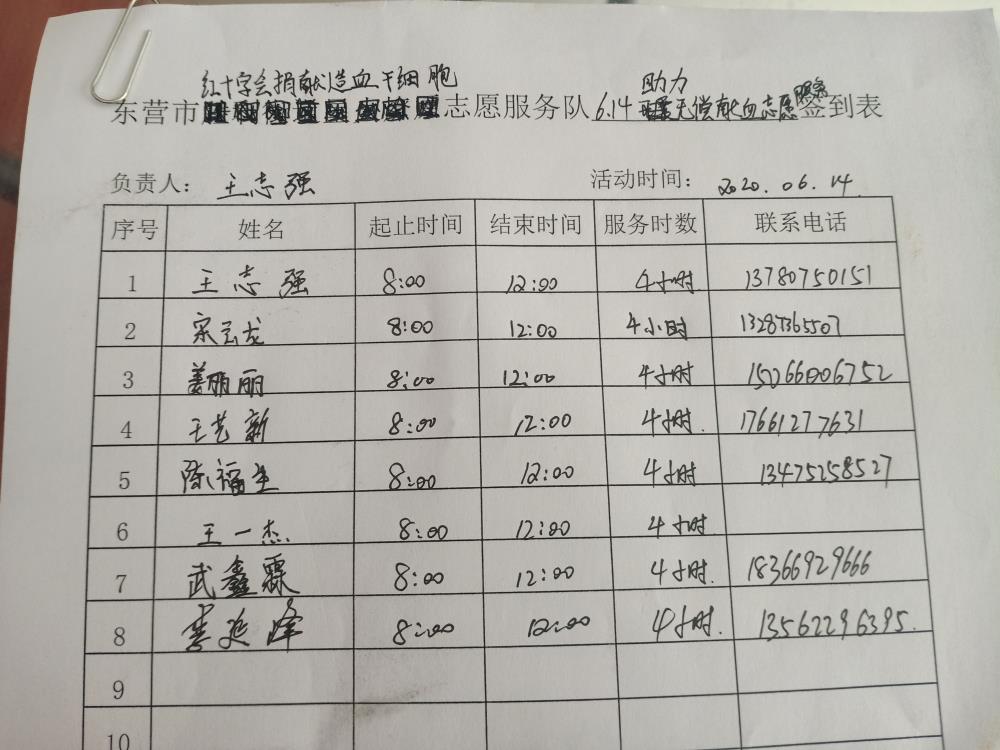 红十字会捐献造血干细胞 助力
东营市志愿服务队6.14无偿献血志愿服务签到表
负责人：王志强 活动时间：2020.06.14.
序号 姓名 起止时间 结束时间 服务时数 联系电话
1 王志强 8:00 12:00 4小时. 13780750151
2 宋云龙 8:00 12:00 4小时 13287365507
3 姜丽丽 8:00 12:00 4小时 15266006752
4 王艺新 8:00 12:00 4小时. 17661277631
5 陈福生 8:00 12:00 4小时 13475258527
6 王一杰. 8:00 12:00 4小时
7 武鑫霖 8:00 12:00 4小时. 18366929666
8 李延峰 8:00 12:00 4小时. 13562296395.
9
10